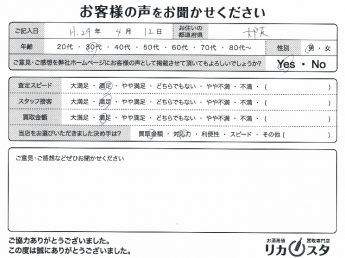 お客様の声をお聞かせください
ご記入日 H.29 年 4 月 12 日 お住いの都道府県 大阪
年齢 20代・30代・40代・50代・60代・70代・80代～ 性別 男・女
ご意見・ご感想を弊社ホームページにお客様の声として掲載させて頂いてもよろしいでしょうか? Yes・No
査定スピード 大満足・満足・やや満足・どちらでもない・やや不満・不満・( )
スタッフ接客 大満足・満足・やや満足・どちらでもない・やや不満・不満・( )
買取金額 大満足・満足・やや満足・どちらでもない・やや不満・不満・( )
当店をお選びいただきました決め手は? 買取金額・対応力・利便性・スピード・その他( )
ご意見・ご感想などぜひお聞かせください
ご協力ありがとうございました。
この度は誠にありがとうございました。
お酒高価 買取専門店
リカスタ